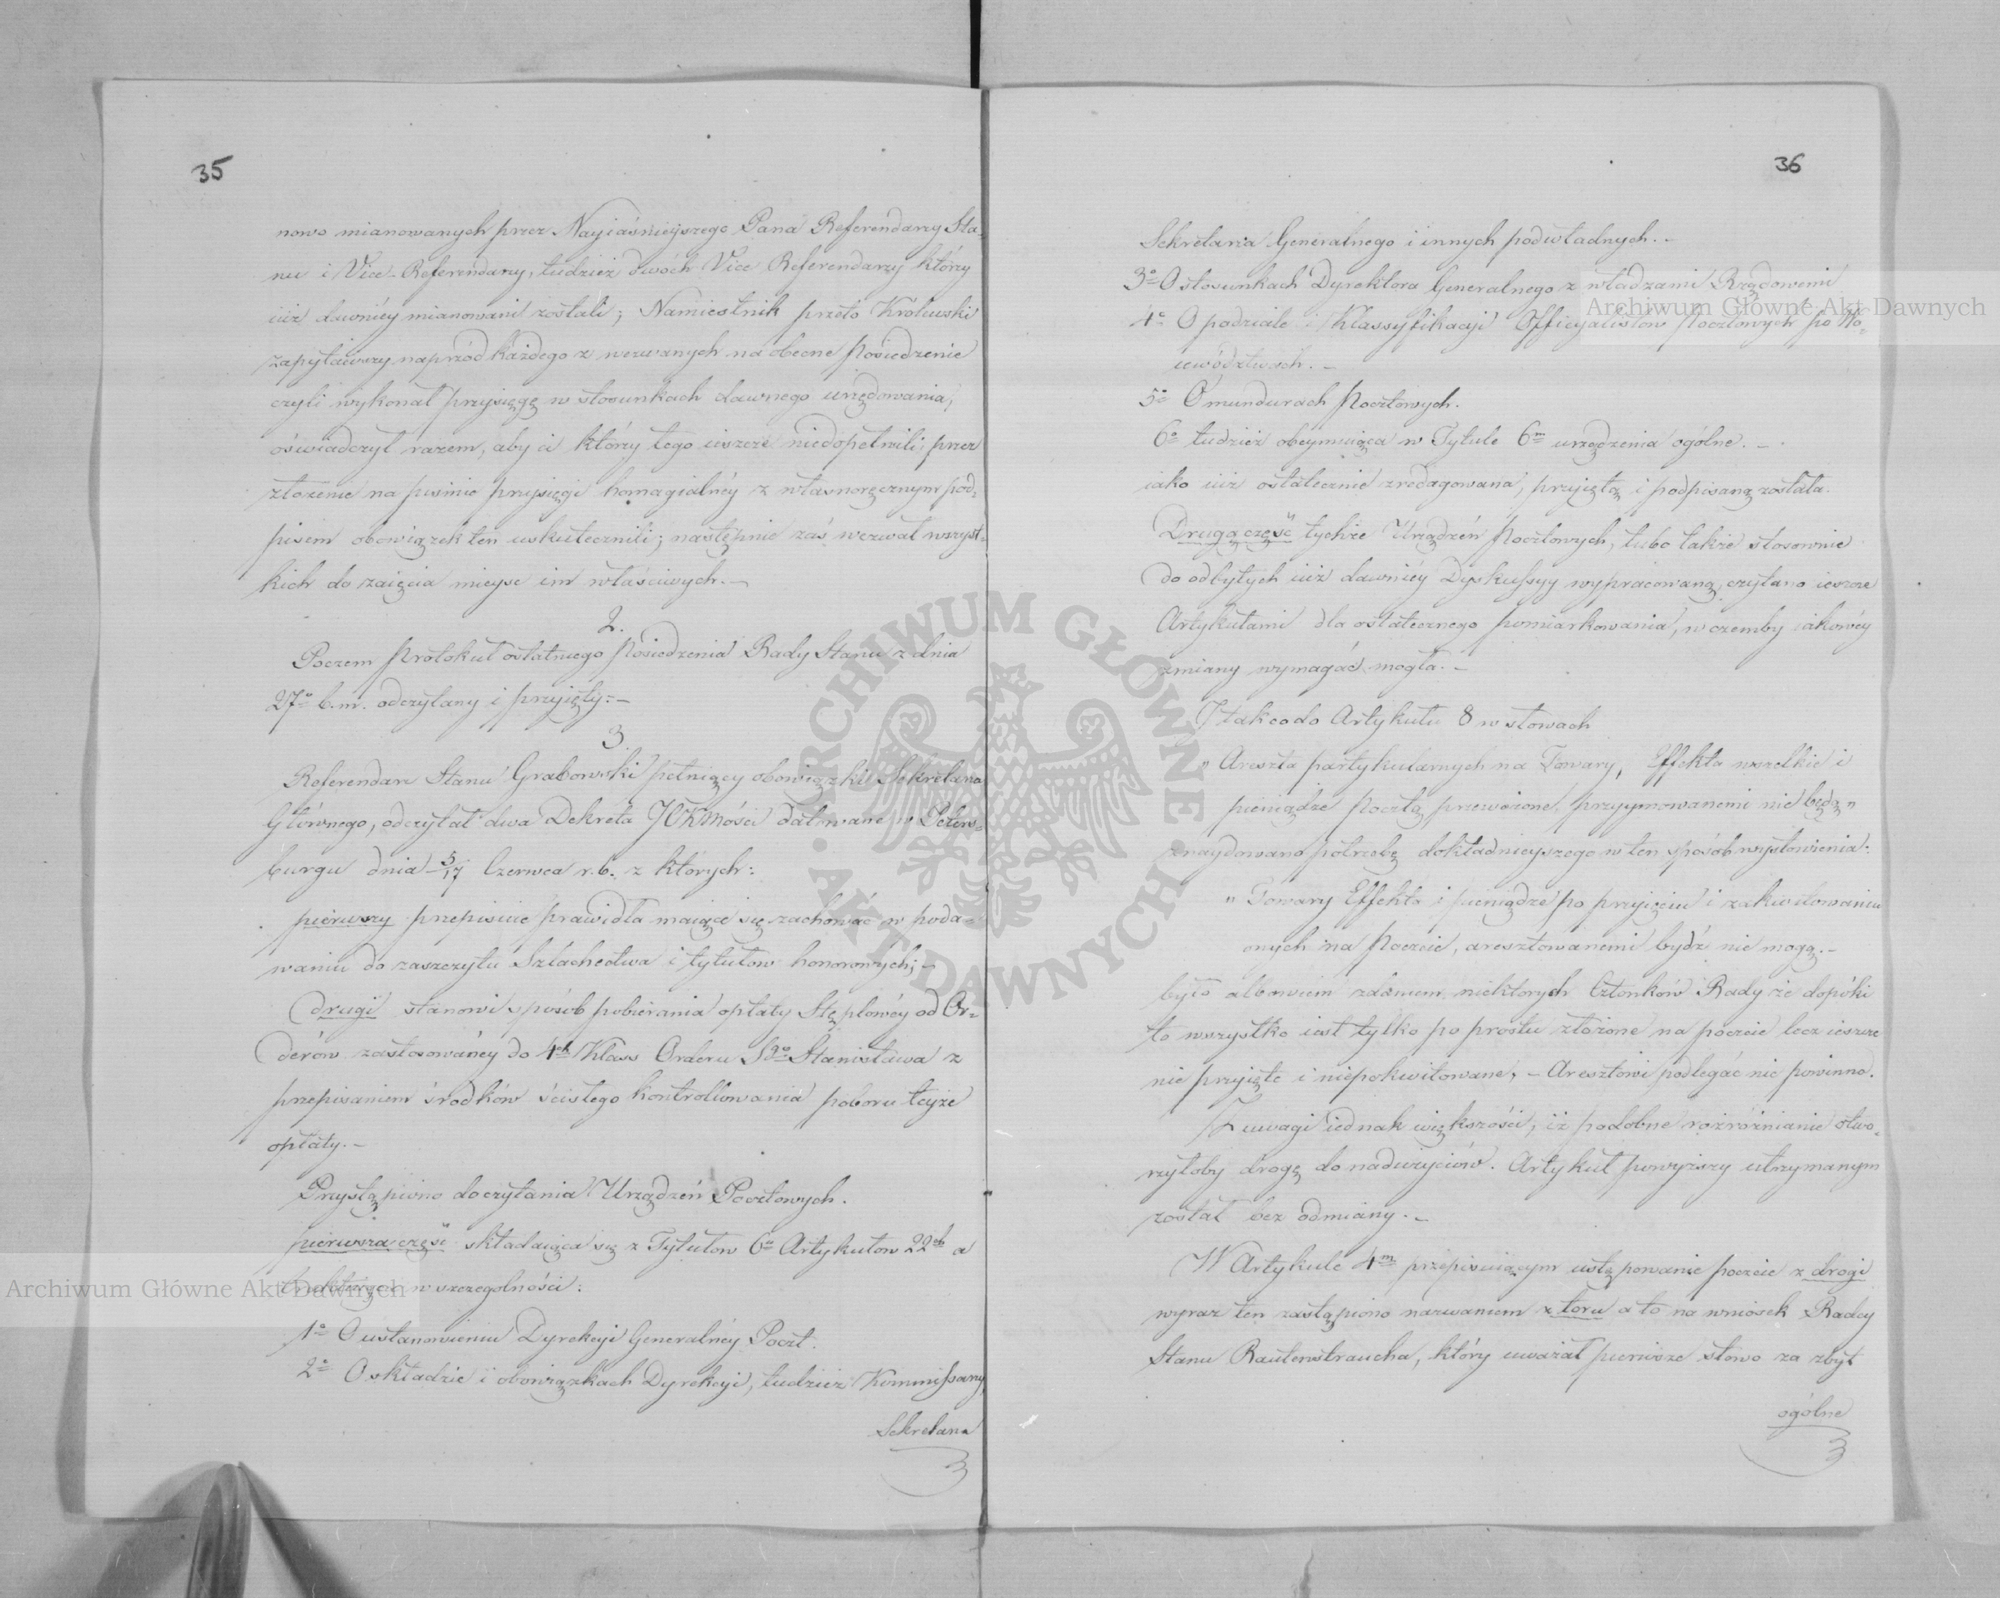 35
nowo mianowanych przez Nayiáśnieyszego Pana Referendarzy Sta-
nu i Vice-Referendarzy, tudzież dwóch Vice Referendarzy którzy
iuż dawniey mianowani zostali; Namiestnik przeto Królewski
zapytawszy naprzód każdego z wezwanych na obecne Posiedzenie
czyli wykonał przysięgę w stosunkach dawnego urzędowania;
oświadczył razem, aby ci którzy tego ieszcze niedopełnili, przez
złożenie na piśmie przysięgi homagialnéy z własnoręcznym pod-
pisem obowiązek ten uskutecznili; następnie zaś wezwał wszyst-
kich do zaięcia mieysc im właściwych.-
2.
Poczem Protokuł ostatniego Posiedzenia Rady Stanu z dnia
27º b. m. odczytany i przyięty.-
3
Referendarz Stanu Grabowski pełniący obowiązki Sekretarza
Głównego, odczytał dwa Dekreta JOKMości datowane w Peters-
burgu dnia 5/17 Czerwca r. b. z których:
pierwszy przepisuie prawidła maiące się zachować w poda-
waniu do zaszczytu Szlachectwa i tytułów honorowych;-
drugi stanowi sposób pobierania opłaty Stęplowéy od Or-
derów zastosowanéy do 4ch Klass Orderu Sgo Stanisława z
przepisaniem środków ścisłego kontrollowania poboru teyże
opłaty.-
Przystąpiono do czytania Urządzeń Pocztowych.
pierwsza część składaiąca się z Tytułów 6u Artykułów 22ch a
w szczególności:
1º O ustanowieniu Dyrekcyi Generalnéy Poczt.
2º O składzie i obowiązkach Dyrekcyi, tudzież Kommissarzy
Sekretarza
36
Sekretarza Generalnego i innych podwładnych.-
3º O stosunkach Dyrektora Generalnego z władzami Rządowemi
4º O podziale i Klassyfikacyi Officyalistów Pocztowych po Wo-
iewództwach.-
5º O mundurach Pocztowych.
6º tudzież obeymuiąca w Tytule 6m urządzenia ogólne.-
iako iuż ostatecznie zredagowana, przyiętą i podpisaną została.
Druga część tychże Urządzeń Pocztowych, lubo także stosownie
do odbytych iuż dawniéy Dyskussyy wypracowaną, czytano ieszcze
Artykułami dla ostatecznego pomiarkowania, w czemby iakowéy
zmiany wymagać mogła.-
I tak co do Artykułu 8 w słowach
"Areszta partykularnych na Towary, Effekta wszelkie i
pieniądze Pocztą przewożone, przyymowanemi nie będą"
znaydowano potrzebę dokładnieyszego w ten sposób wysłowienia:
"Towary Effekta i pieniądze po przyięciu i zakwitowaniu
onych na Poczcie, aresztowanemi bydź nie mogą.-
było albowiem zdaniem niektorych Członków Rady że dopóki
to wszystko iest tylko po prostu złożone na poczcie lecz ieszcze
nie przyięte i niepokwitowane,- Aresztowi podlegać nie powinno.
Z uwagi iednak większości, iż podobne rozróżnianie otwo-
rzyłoby drogę do nadużyciów. Artykuł powyższy utrzymanym
został bez odmiany.-
W Artykule 4m przepisuiącym ustępowanie poczcie z drogi
wyraz ten zastąpiono nazwaniem z toru a to na wniosek Radcy
Stanu Rautenstraucha, który uważał pierwsze słowo za zbyt
ogólne
Archiwum Główne Akt Dawnych
Archiwum Główne Akt Dawnych
ARCHIWUM GŁÓWNE · AKT DAWNYCH ·